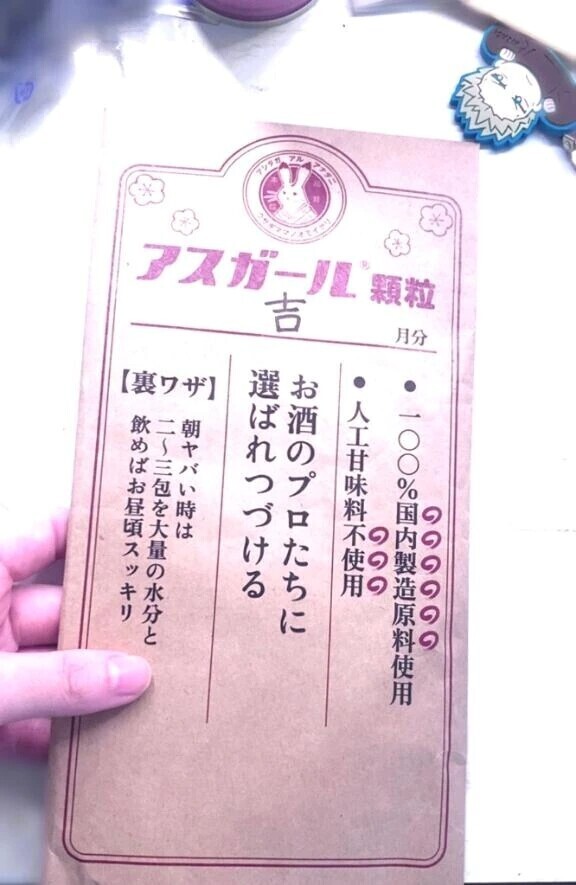 アシタガ アル アナタニ
アスガール® 顆粒
吉
月分
● 一〇〇%国内製造原料使用
● 人工甘味料不使用
お酒のプロたちに
選ばれつづける
【裏ワザ】
朝ヤバい時は
二〜三包を大量の水分と
飲めばお昼頃スッキリ